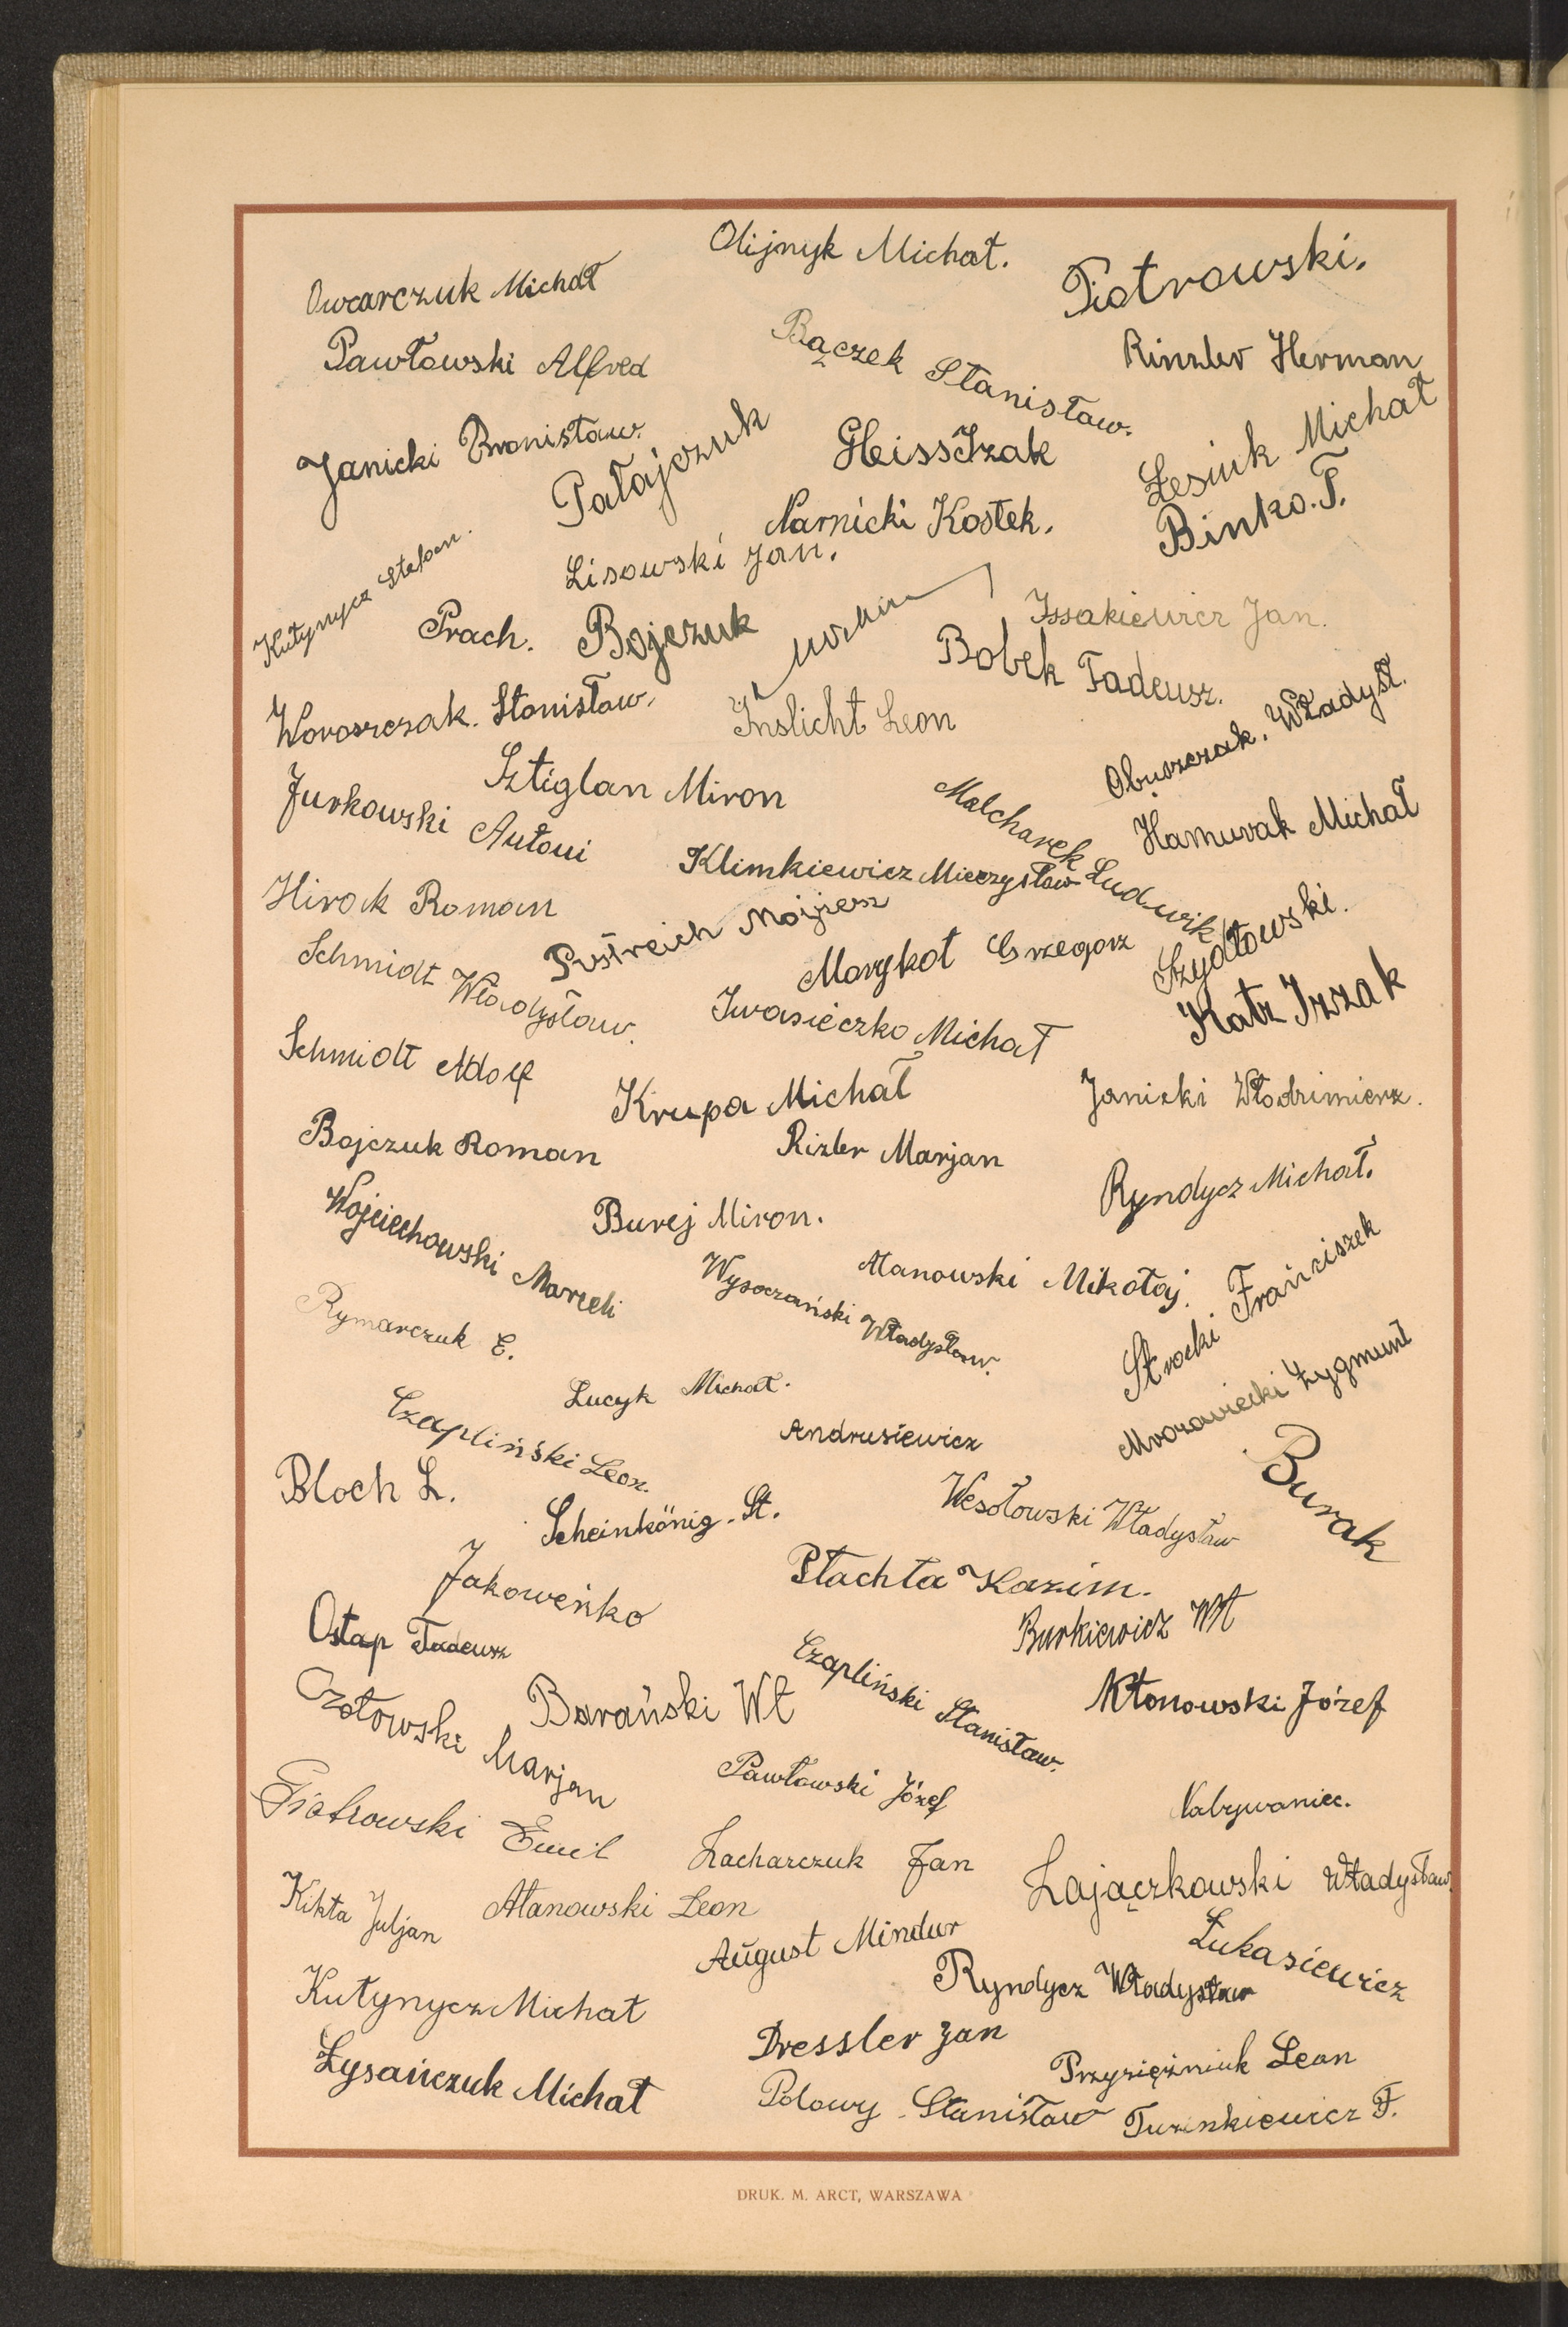 Olijnyk Michał.
Owcarczuk Michał
Piotrowski.
Pawłowski Alfred
Bączek Stanisław.
Rinzler Herman
Janicki Bronisław.
Patajczuk
Gleiss Izak
Łesiuk Michał
Narnicki Kostek.
Binko. T.
Kutynycz Stefan.
Lisowski Jan.
Prach.
Bojczuk
Issakiewicz Jan.
Bobek Tadeusz.
Woroszczak. Stanisław.
Inslicht Leon
Obuszczak. Władysł.
Sztiglan Miron
Jurkowski Antoni
Malcharek Ludwik
Hamurak Michał
Klimkiewicz Mieczysław
Hirok Roman
Pistreich Mojżesz
Szydłowski.
Schmidt Władysław.
Marykot Grzegorz
Katz Izzak
Iwasieczko Michał
Schmidt Adolf
Krupa Michał
Janicki Włodzimierz.
Bojczuk Roman
Rizler Marjan
Ryndycz Michał.
Wojciechowski Marceli
Burej Miron.
Atanowski Mikołaj.
Strocki Franciszek
Rymarczuk E.
Wysoczański Władysław.
Łucyk Michał.
Mrozowiecki Zygmunt
Czapliński Leon.
Andrusiewicz
Burak
Bloch L.
Scheinkönig. St.
Wesołowski Władysław
Jakoweńko
Płachta Kazim.
Ostap Tadeusz
Burkiewicz Wł
Czapliński Stanisław.
Czołowski Marjan
Barański Wł
Kłonowski Józef
Pawłowski Józef
Nabywaniec.
Piotrowski Emil
Zacharczuk Jan
Zajączkowski Władysław.
Kikta Juljan
Atanowski Leon
August Mindur
Łukasiewicz
Kutynycz Michał
Ryndycz Władysław
Dressler Jan
Łysańczuk Michał
Przysiężniuk Leon
Polowy Stanisław
Turznkiewicz F.
DRUK. M. ARCT, WARSZAWA